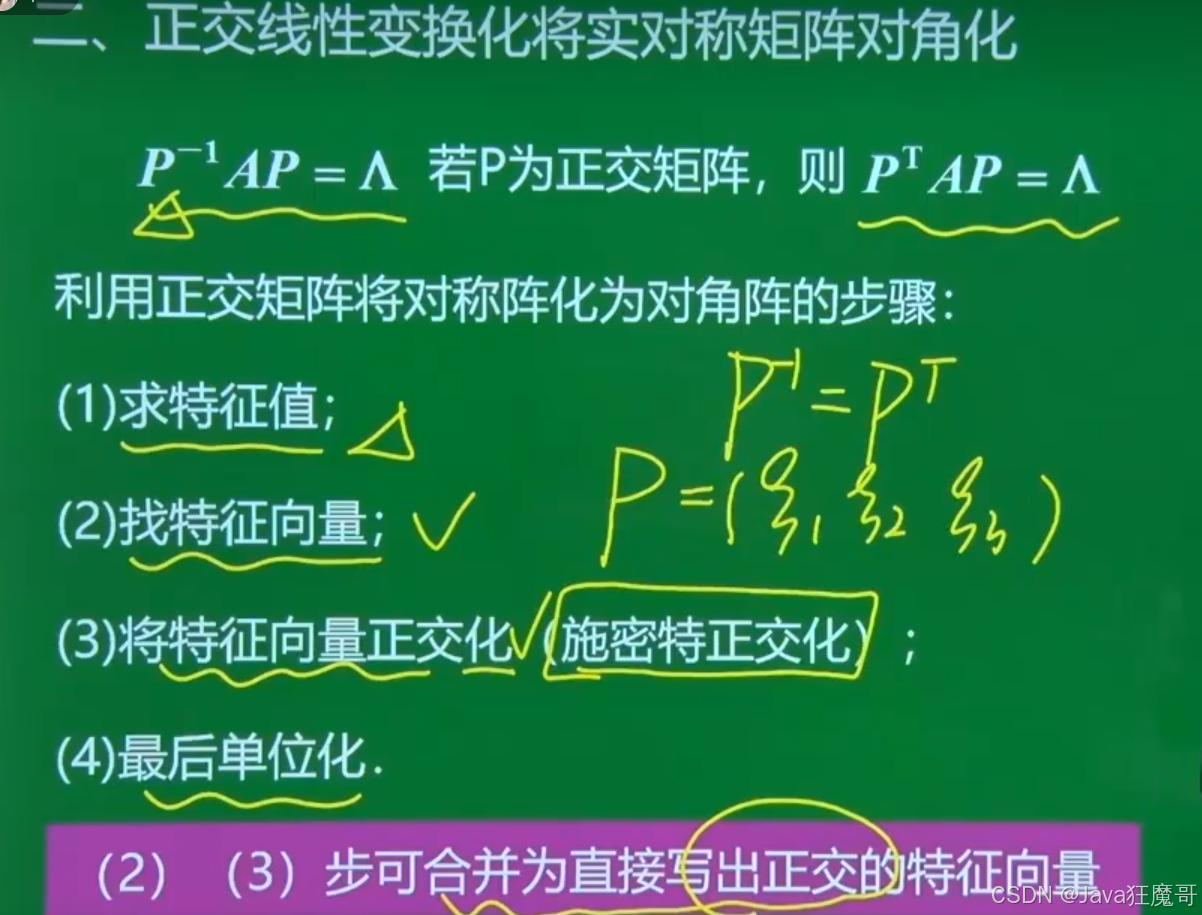 二、正交线性变换化将实对称矩阵对角化
P⁻¹AP = Λ 若P为正交矩阵，则 PᵀAP = Λ
利用正交矩阵将对称阵化为对角阵的步骤：
(1)求特征值；
P⁻¹ = Pᵀ
(2)找特征向量；
P = (ξ₁ ξ₂ ξ₃)
(3)将特征向量正交化(施密特正交化)；
(4)最后单位化.
（2）（3）步可合并为直接写出正交的特征向量
CSDN @Java狂魔哥